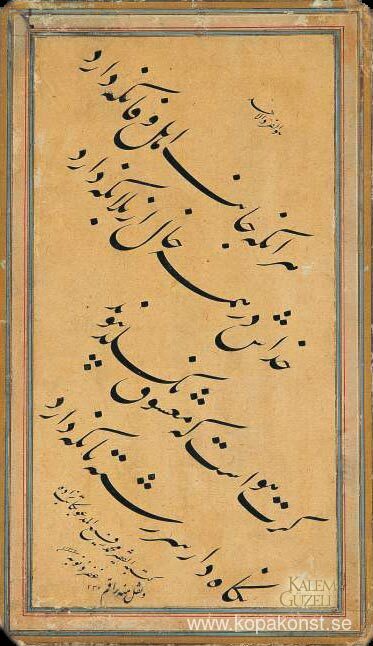 هر آنکه جانب اهل وفا نگه دارد
خداش در همه حال از بلا نگه دارد
گرت هواست که معشوق نگسلد پیوند
نگاه دار سر رشته تا نگه دارد
KALEM GÜZELİ
www.kopakonst.se